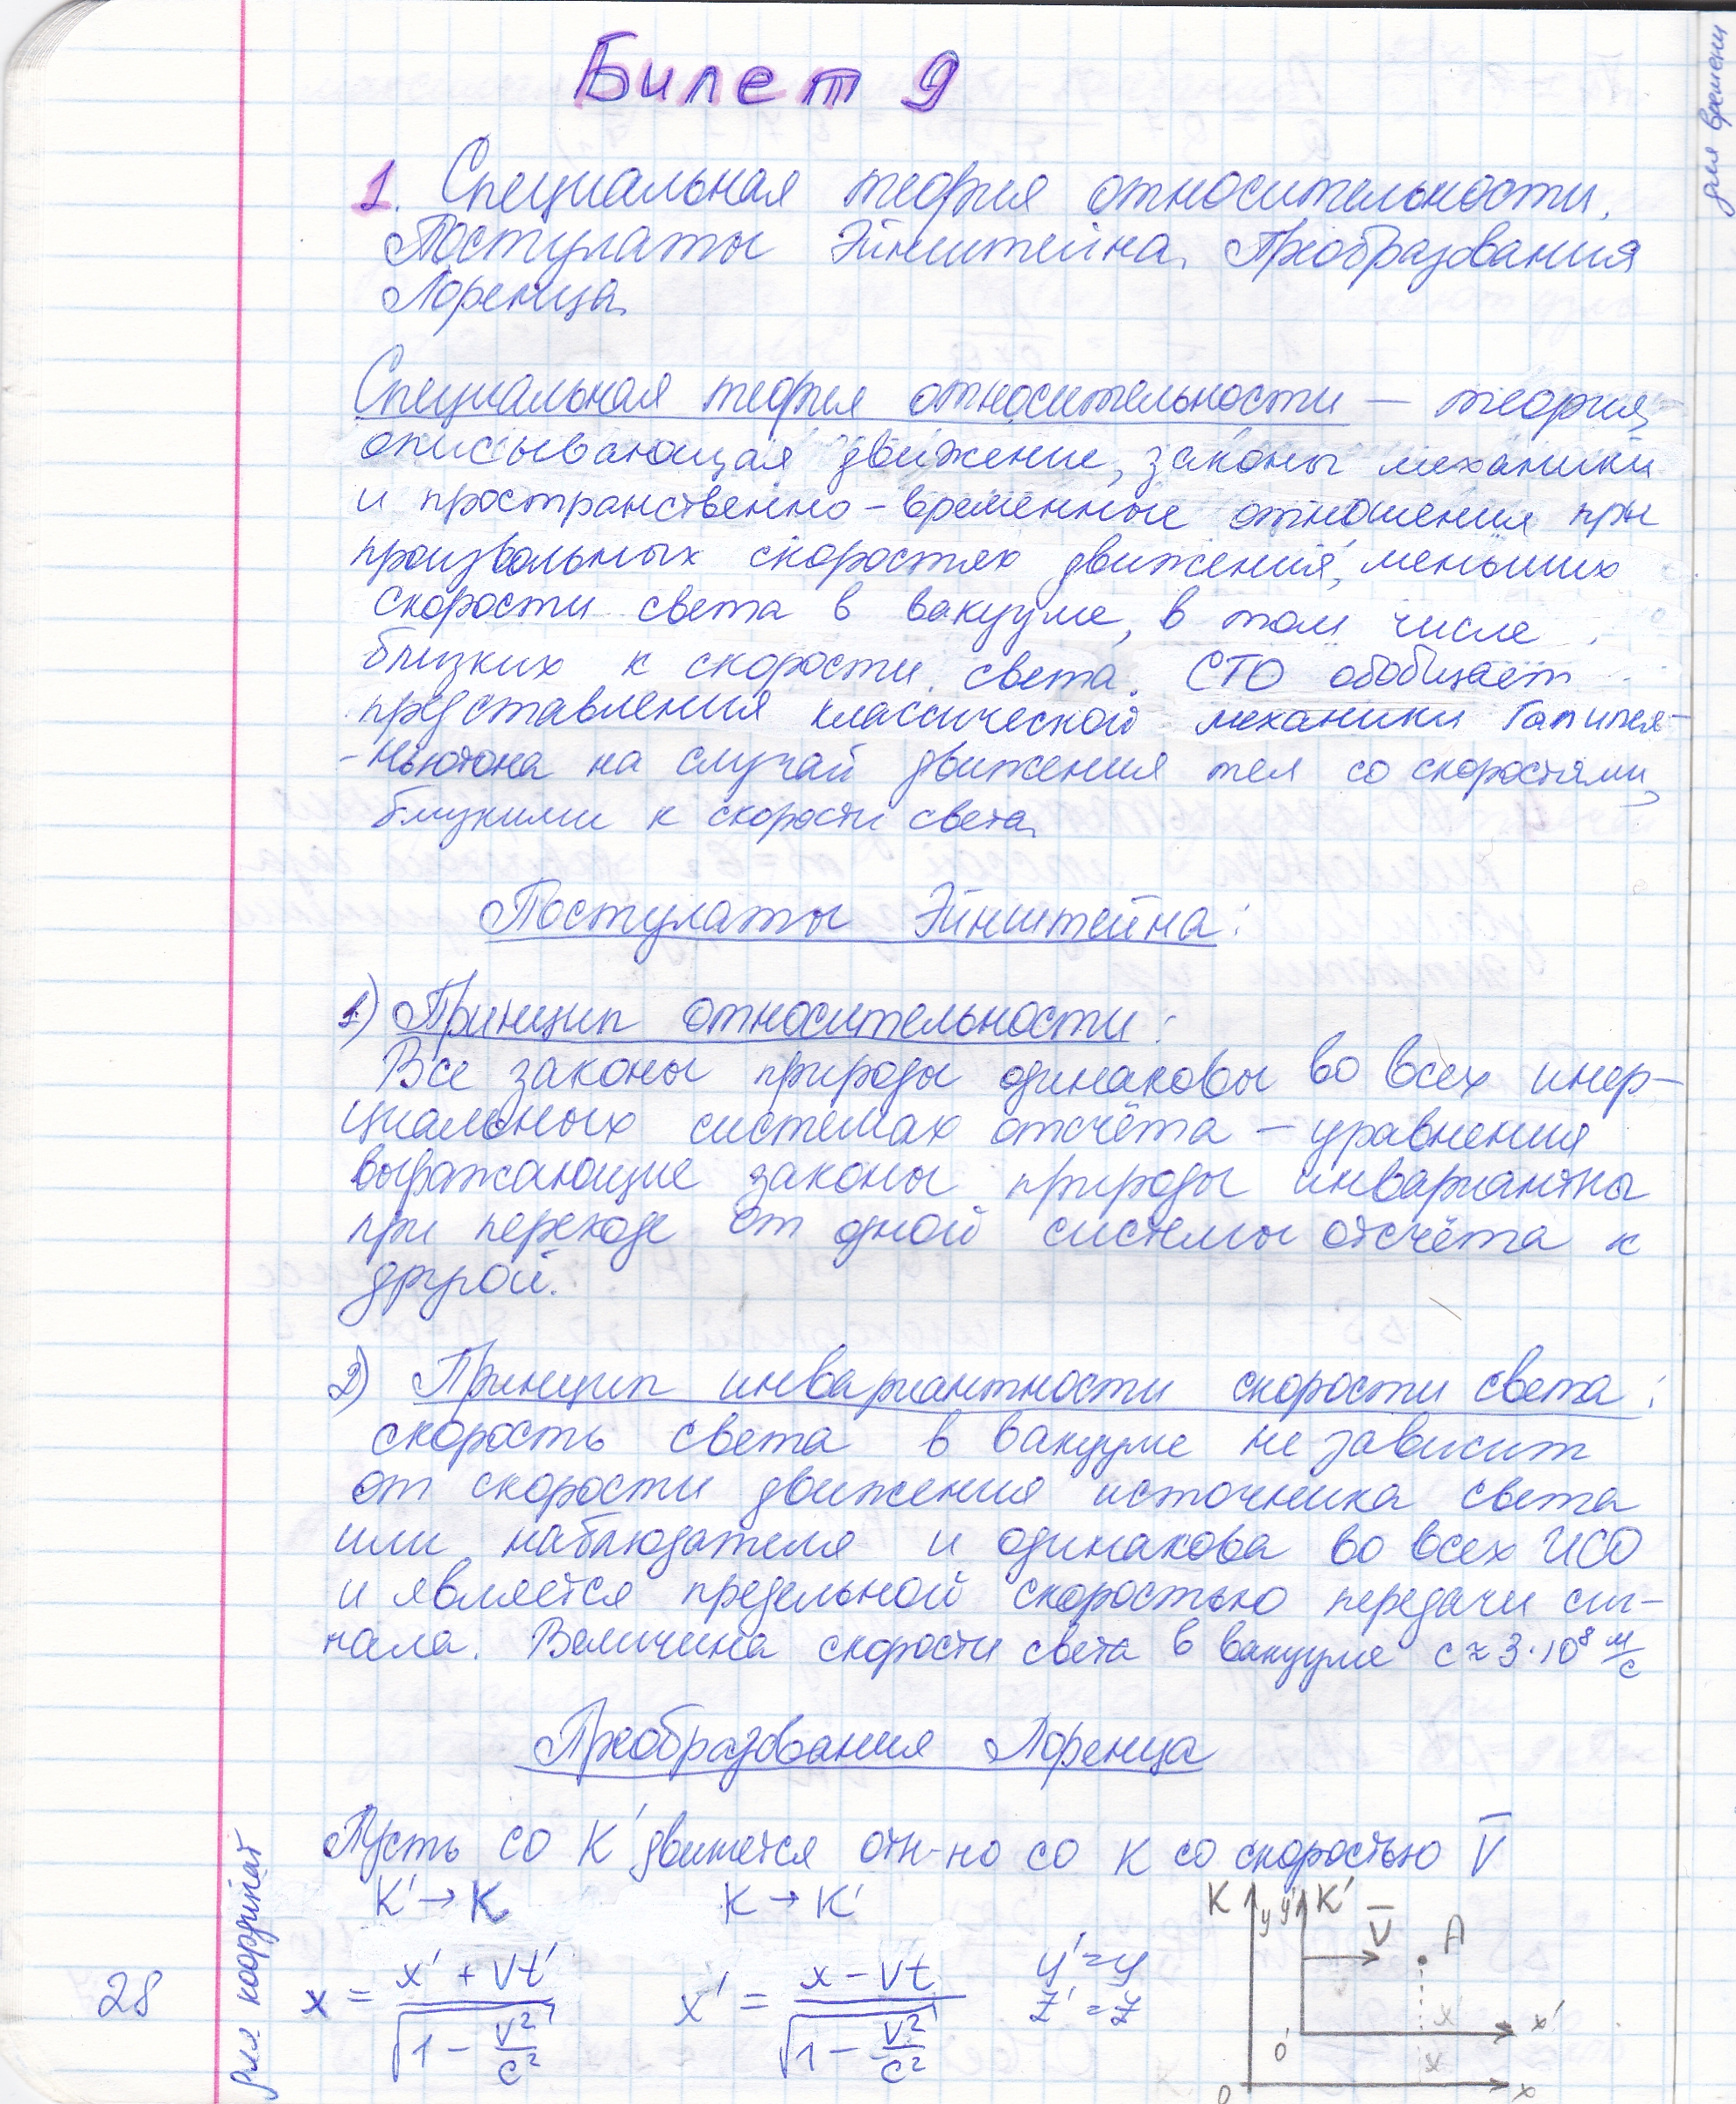 Билет 9
1. Специальная теория относительности.
Постулаты Эйнштейна. Преобразования
Лоренца.
Специальная теория относительности — теория,
описывающая движение, законы механики
и пространственно-временные отношения при
произвольных скоростях движения, меньших
скорости света в вакууме, в том числе
близких к скорости света. СТО обобщает
представления классической механики Галилея-
-Ньютона на случай движения тел со скоростями,
близкими к скорости света.
Постулаты Эйнштейна:
1) Принцип относительности:
Все законы природы одинаковы во всех инер-
циальных системах отсчёта — уравнения
выражающие законы природы инвариантны
при переходе от одной системы отсчёта к
другой.
2) Принцип инвариантности скорости света:
скорость света в вакууме не зависит
от скорости движения источника света
или наблюдателя и одинакова во всех ИСО
и является предельной скоростью передачи сиг-
нала. Величина скорости света в вакууме c ≈ 3·10⁸ м/с
Преобразования Лоренца
Пусть со K' движется отн-но со K со скоростью V̅
K' → K K → K'
x = (x' + Vt')/√(1 − V²/c²) x' = (x − Vt)/√(1 − V²/c²) y' = y
z' = z
K y y' K' V̅ A
x' x'
0' x
0 x
для координат
28
для времени